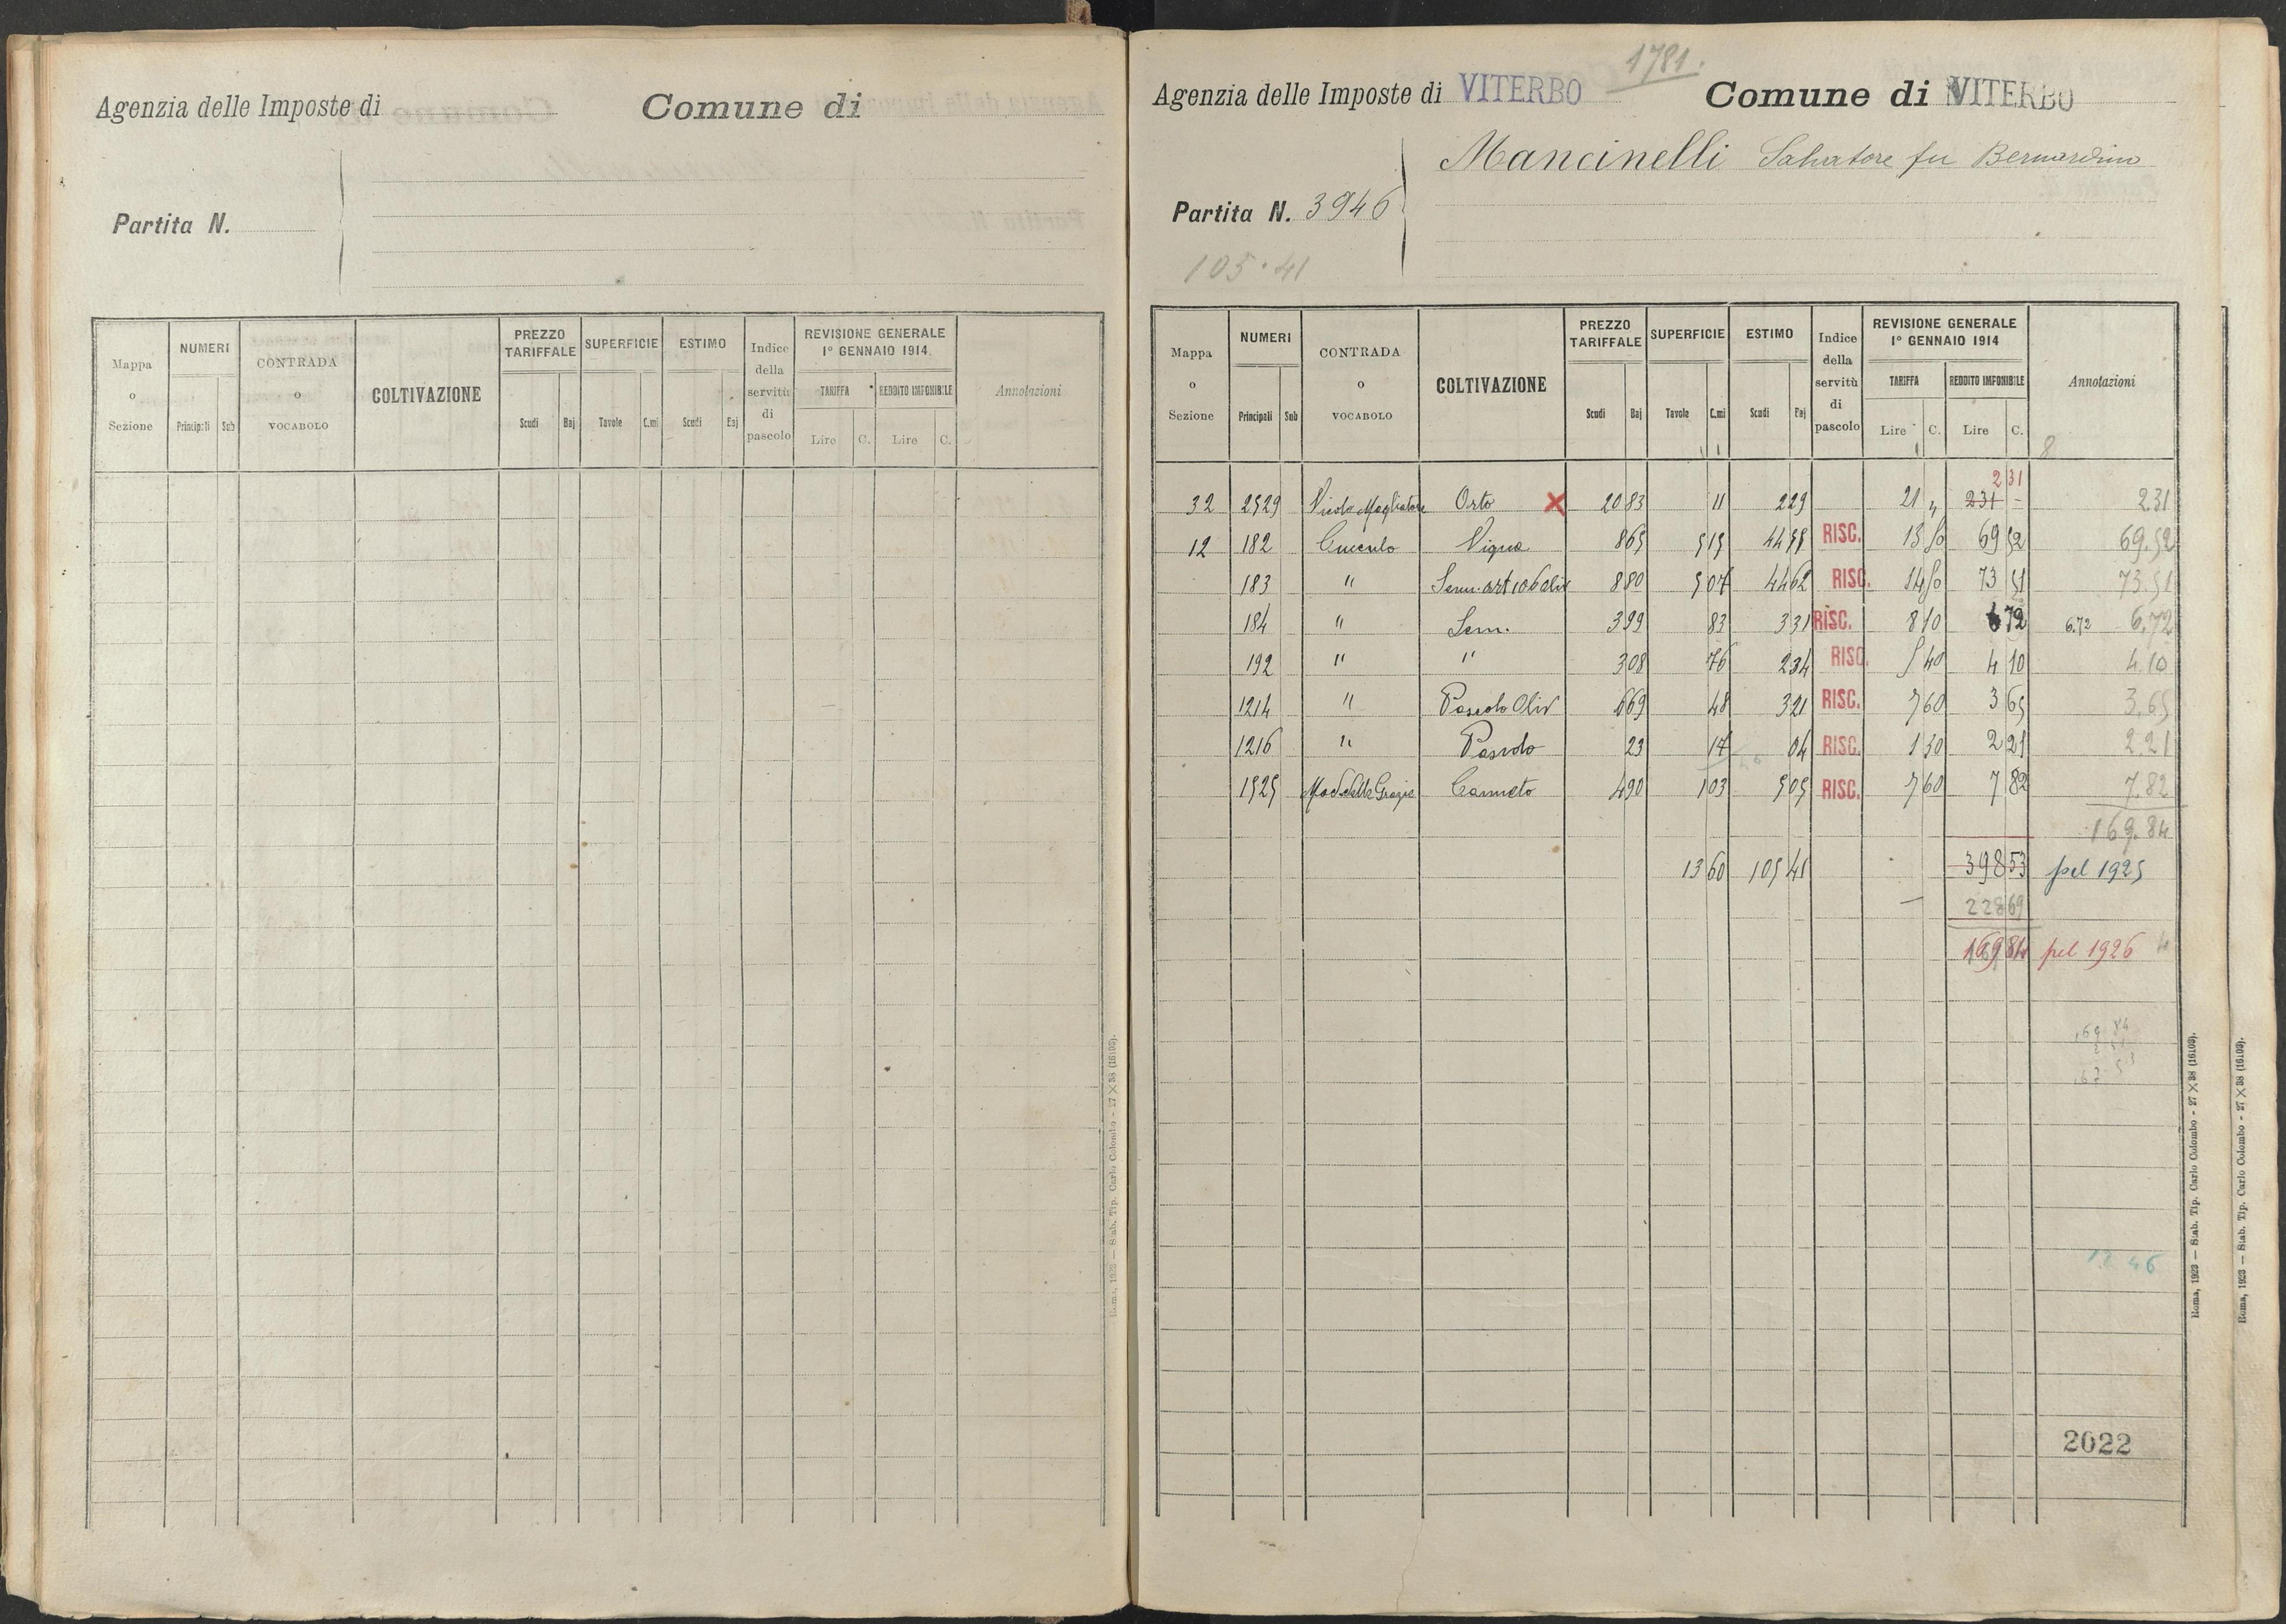 Agenzia delle Imposte di
Comune di
Partita N.
Mappa o Sezione
NUMERI
Principali Sub
CONTRADA o VOCABOLO
COLTIVAZIONE
PREZZO TARIFFALE
Scudi Baj
SUPERFICIE
Tavole C.mi
ESTIMO
Scudi Baj
Indice della servitù di pascolo
REVISIONE GENERALE
1° GENNAIO 1914
TARIFFA
Lire C.
REDDITO IMPONIBILE
Lire C.
Annotazioni
Roma, 1923 — Stab. Tip. Carlo Colombo - 27 X 38 (16103).
1781.
Agenzia delle Imposte di VITERBO
Comune di VITERBO
Mancinelli Salvatore fu Bernardino
Partita N. 3946
105.41
Mappa o Sezione
NUMERI
Principali Sub
CONTRADA o VOCABOLO
COLTIVAZIONE
PREZZO TARIFFALE
Scudi Baj
SUPERFICIE
Tavole C.mi
ESTIMO
Scudi Baj
Indice della servitù di pascolo
REVISIONE GENERALE
1° GENNAIO 1914
TARIFFA
Lire C.
REDDITO IMPONIBILE
Lire C.
Annotazioni
8
2 31
32 2529 Vicolo Magliatore Orto X 20 83 11 2 29 21 " 231 - 2.31
12 182 Cuculo Vigna 8 65 5 15 44 55 RISC. 13 50 69 52 69.52
183 " Sem. art 106 oliv 8 80 5 07 44 62 RISC. 14 50 73 51 73.51
184 " Sem. 3 99 83 3 31 RISC. 8 10 6 72 6.72 6.72
192 " " 3 08 76 2 34 RISC. 5 40 4 10 4.10
1214 " Pascolo Oliv 6 69 48 3 21 RISC. 7 60 3 65 3.65
1216 " Pascolo 23 17 04 RISC. 1 30 2 21 2.21
1525 Mad delle Grazie Canneto 4 90 1 03 5 05 RISC. 7 60 7 82 7.82
169.84
13 60 105 41 398 53 pel 1925
228 69
169 84 pel 1926
169 84
12 46
2022
Roma, 1923 — Stab. Tip. Carlo Colombo - 27 X 38 (16103).
Roma, 1923 — Stab. Tip. Carlo Colombo - 27 X 38 (16103).